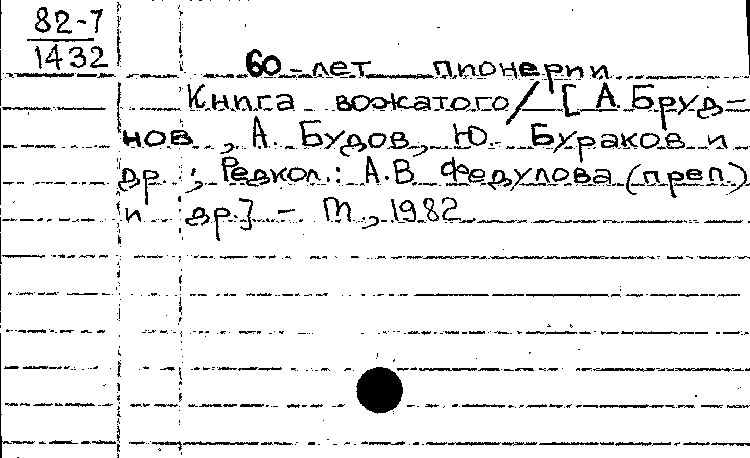 82-7
1432
60-лет пионерии
Книга вожатого/ [А. Бруд-
нов, А. Будов, Ю. Бураков и
др.; Редкол.: А.В. Федулова (преп.)
и др.] - М, 1982